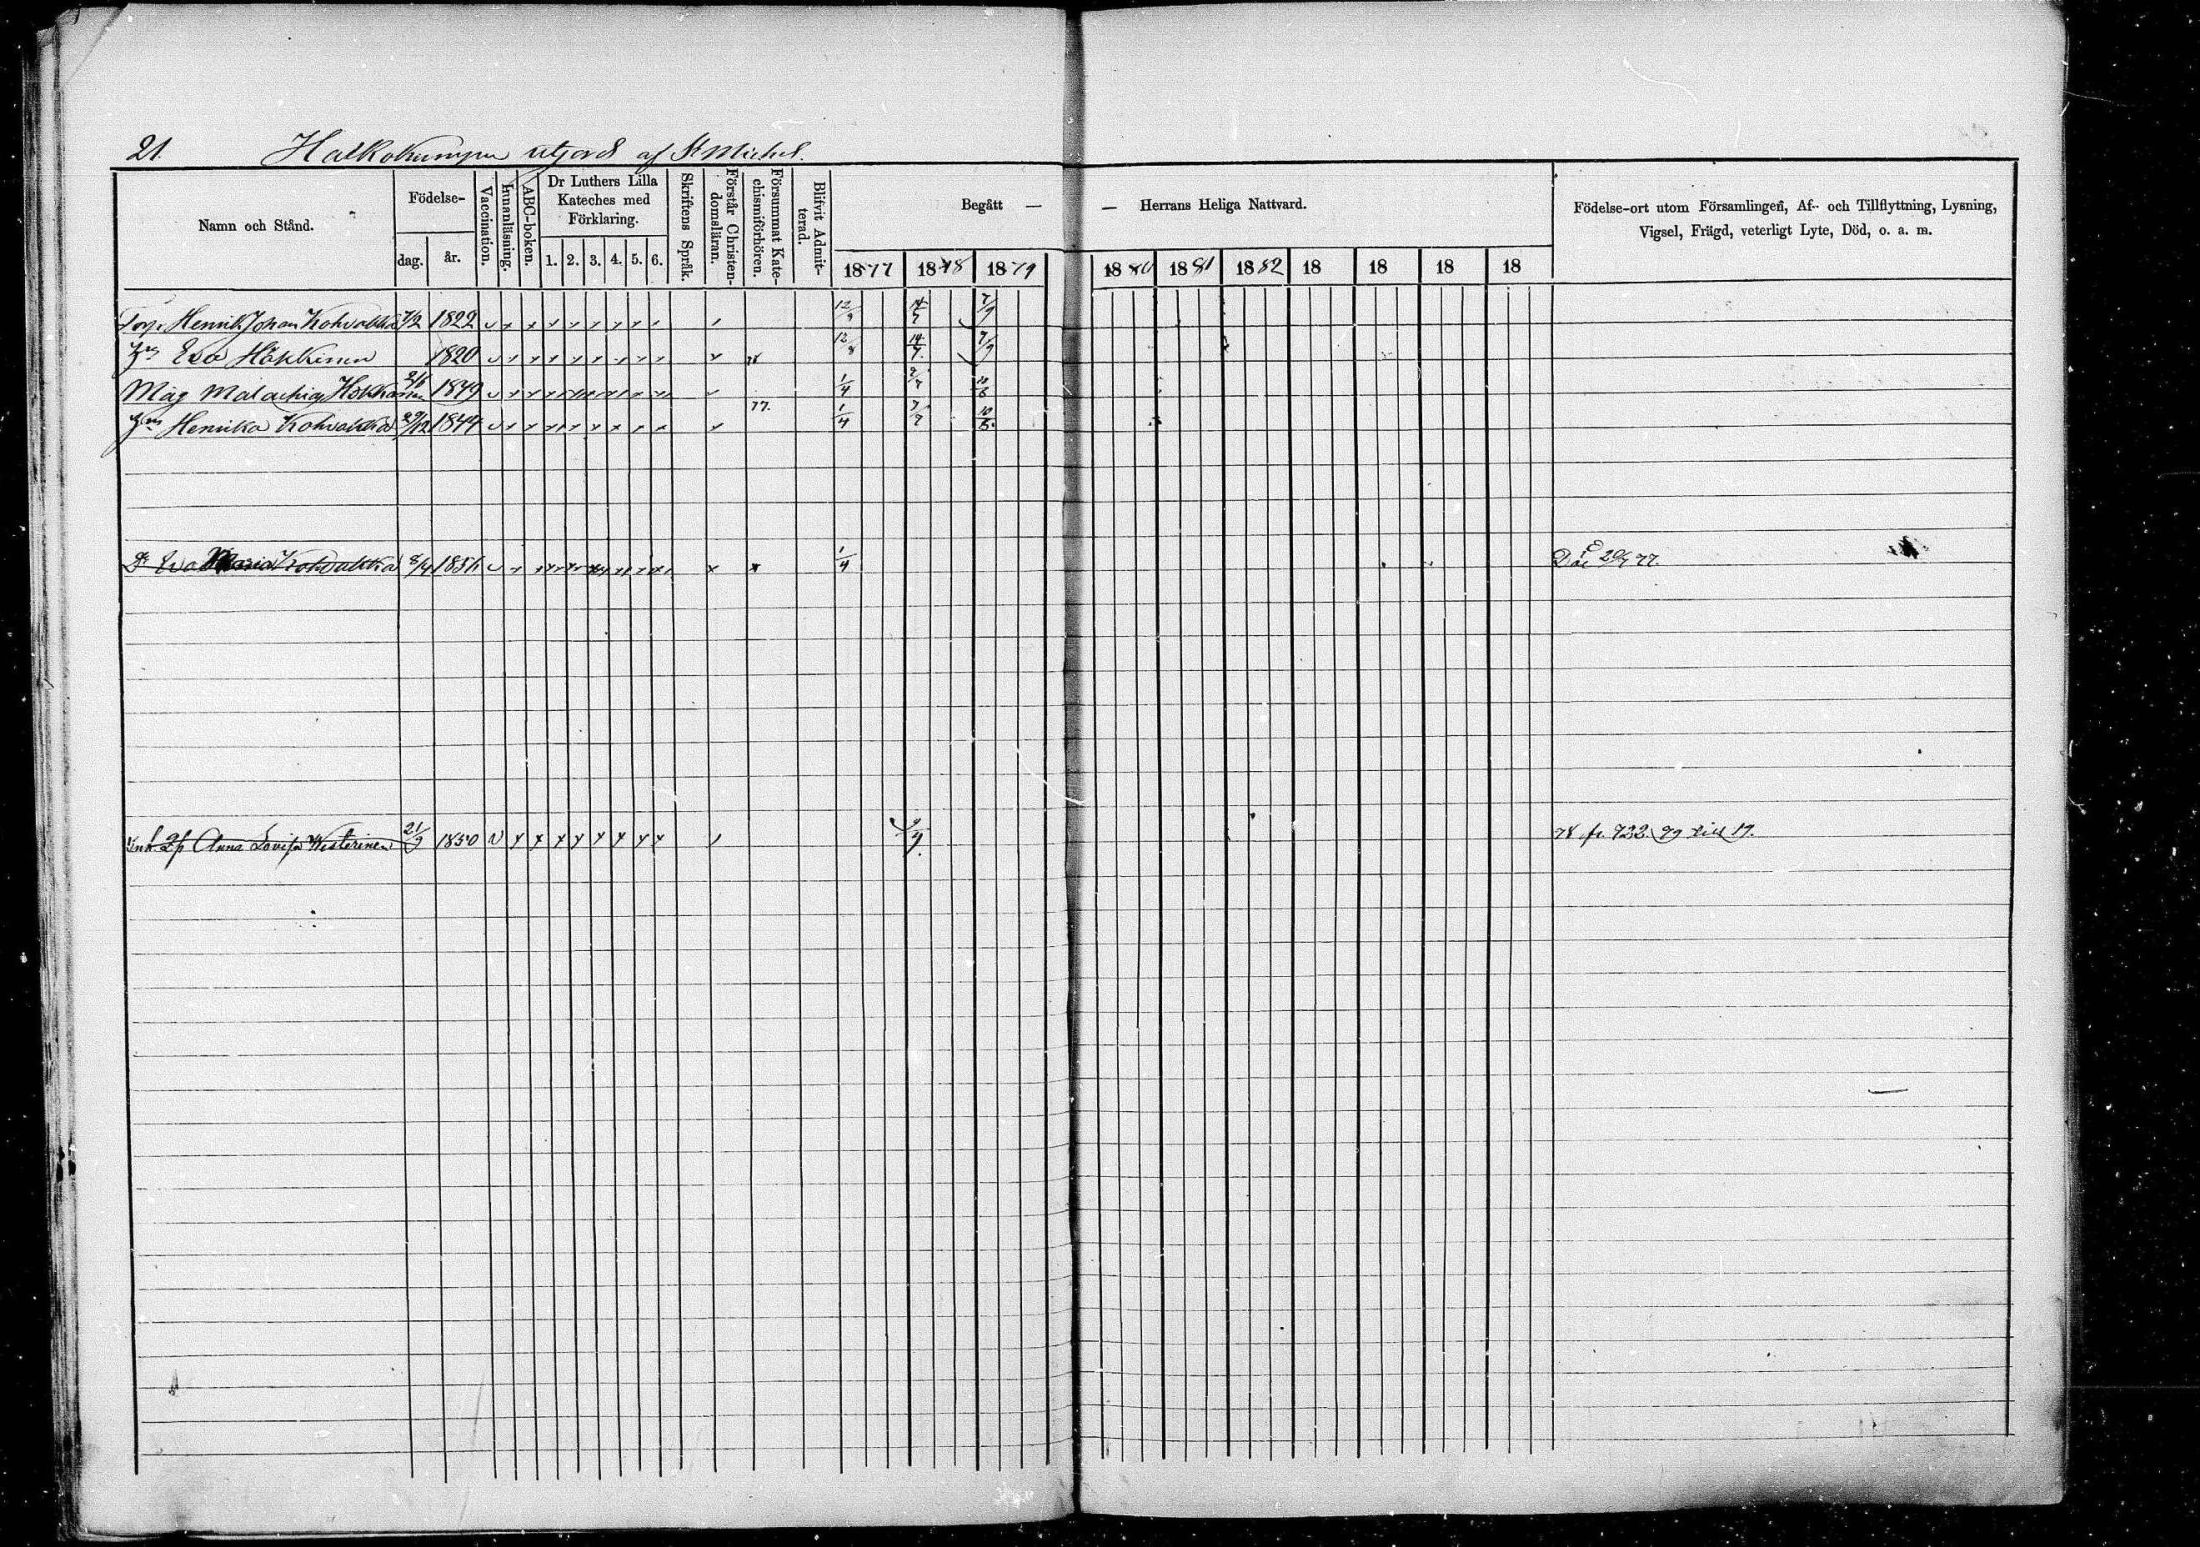 21. Halkokumpu utjord af St Michel.
Namn och Stånd.
Födelse-
dag.
år.
Vaccination.
Innanläsning.
ABC-boken.
Dr Luthers Lilla Kateches med Förklaring.
1. 2. 3. 4. 5. 6.
Skriftens Språk.
Förstår Christendomsläran.
Försummat Katechismiförhören.
Blifvit Admitterad.
Begått — — Herrans Heliga Nattvard.
1877 1878 1879 1880 1881 1882 18 18 18 18
Födelse-ort utom Församlingen, Af- och Tillflyttning, Lysning,
Vigsel, Frägd, veterligt Lyte, Död, o. a. m.
Torp. Henrik Johan Kohvakka 7/2 1822 12/8 14/7 7/9
Hu Eva Hökkinen 1820 78 12/8 14/7 7/9
Måg Malachias Hokkanen 2/6 1849 1/4 7/7 10/6
Hu Henrika Kohvakka 29/12 1844 77. 1/4 7/7 10/6
Dr Eva Maria Kohvakka 8/4 1856 1/4 Död 29/7 77.
Enk. Anna Lovisa Westerinen 21/9 1850 78 fr. 722. 79 till 17.